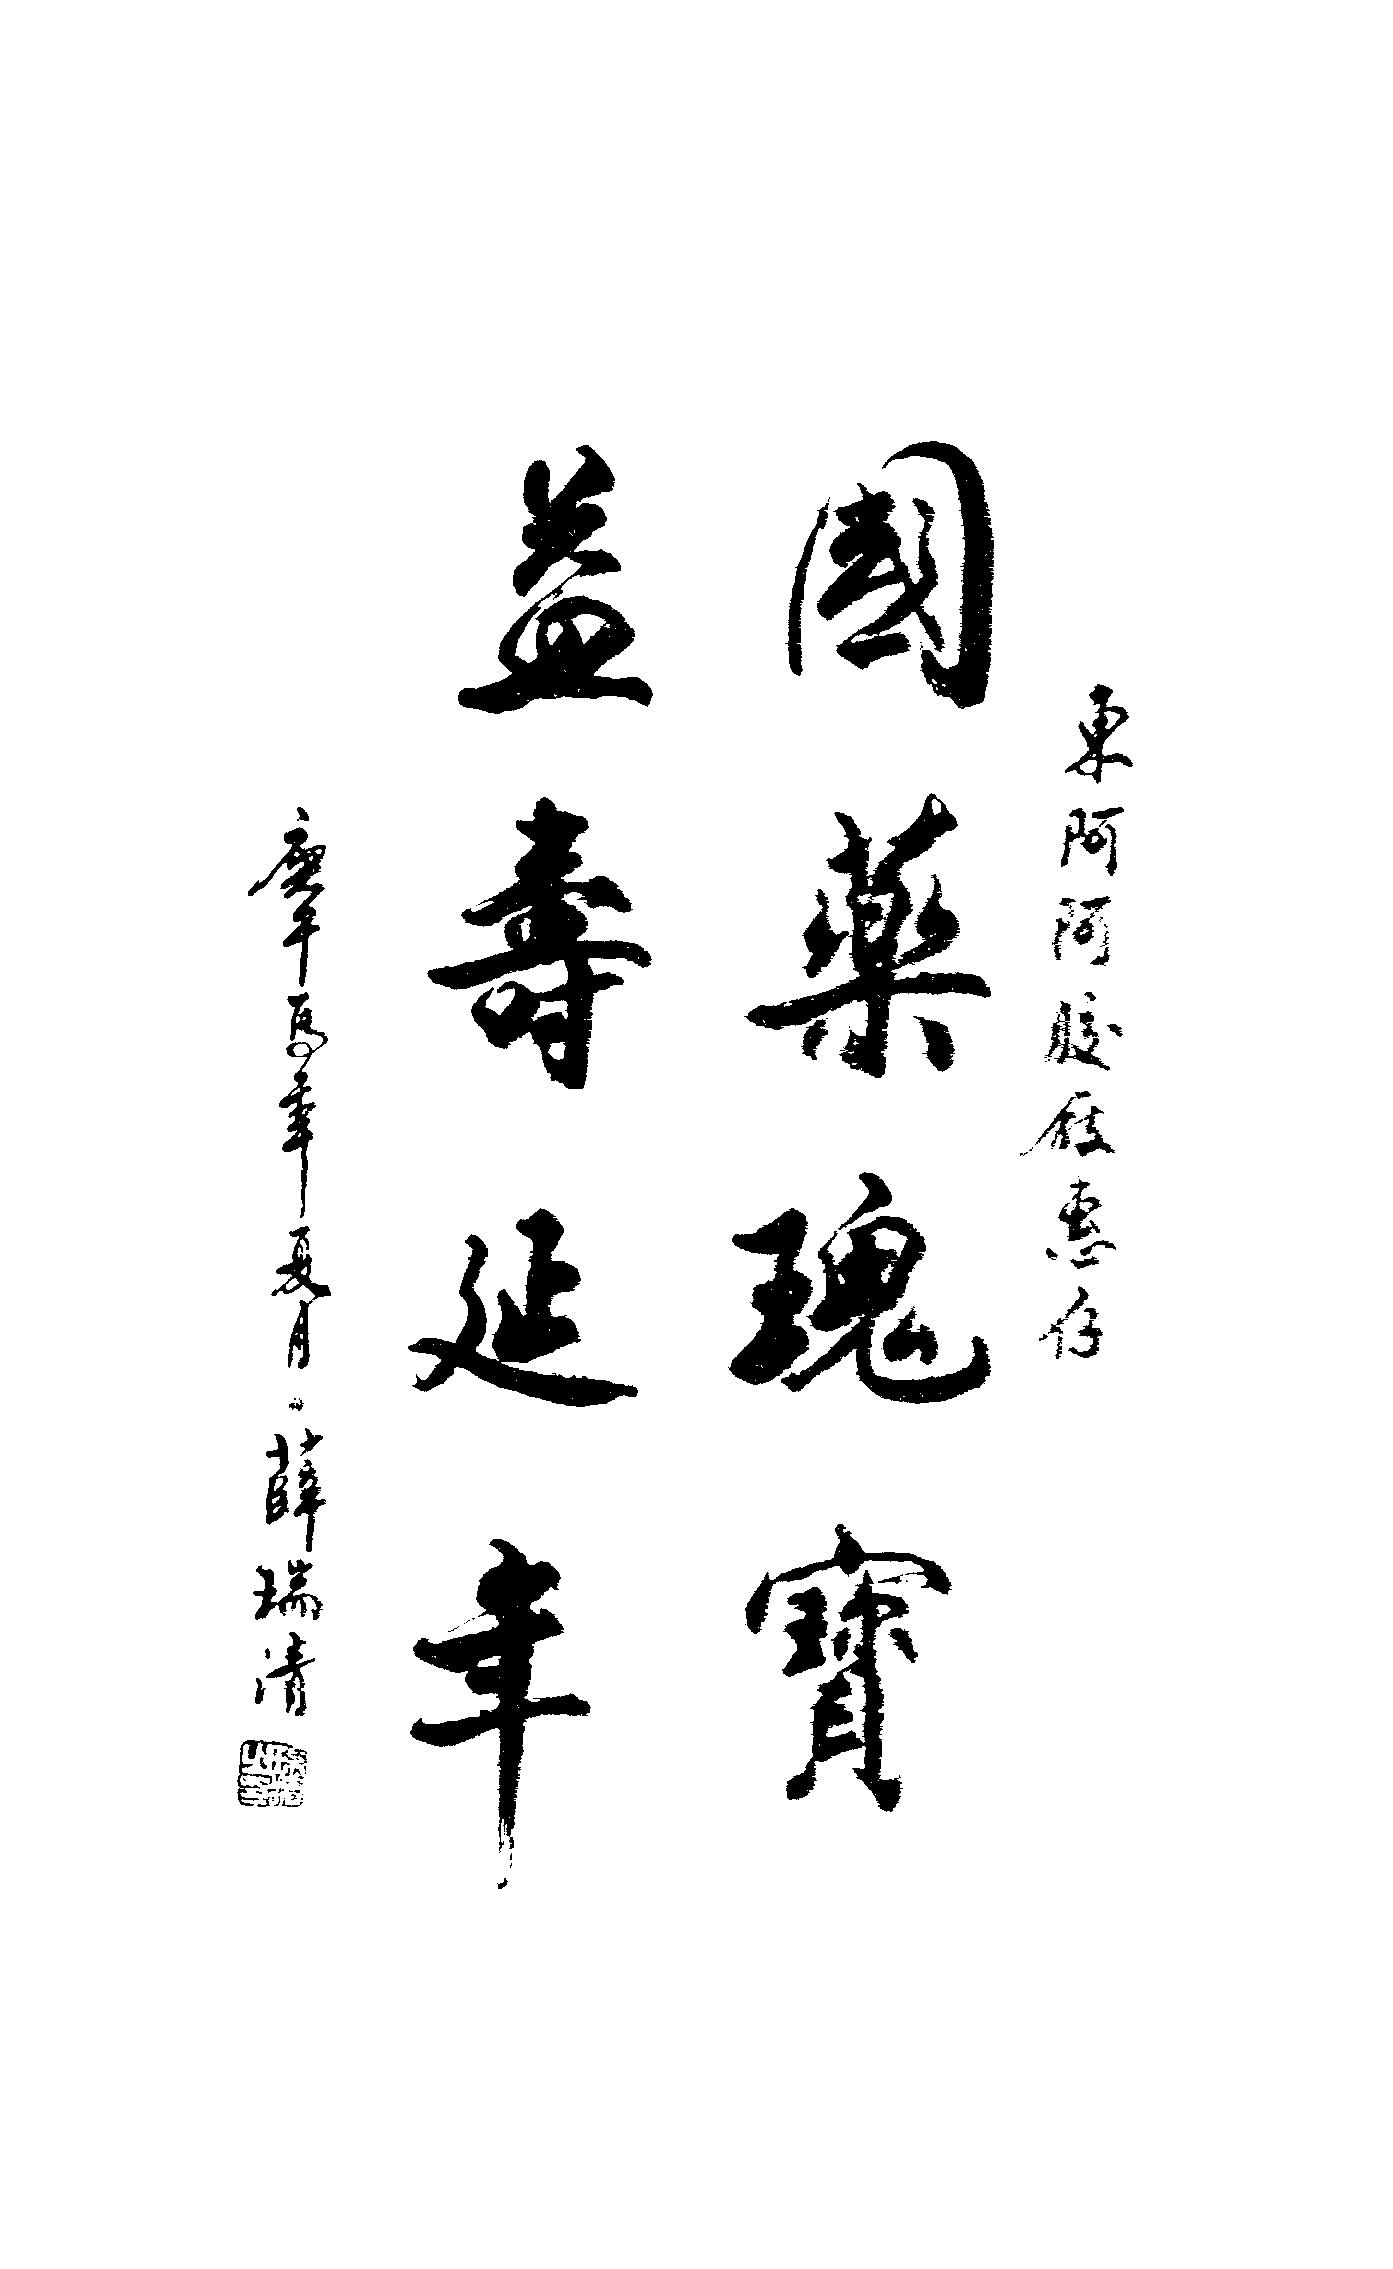 東阿阿膠廠惠存
國藥瑰寶
益壽延年
庚午馬年夏月薛瑞清